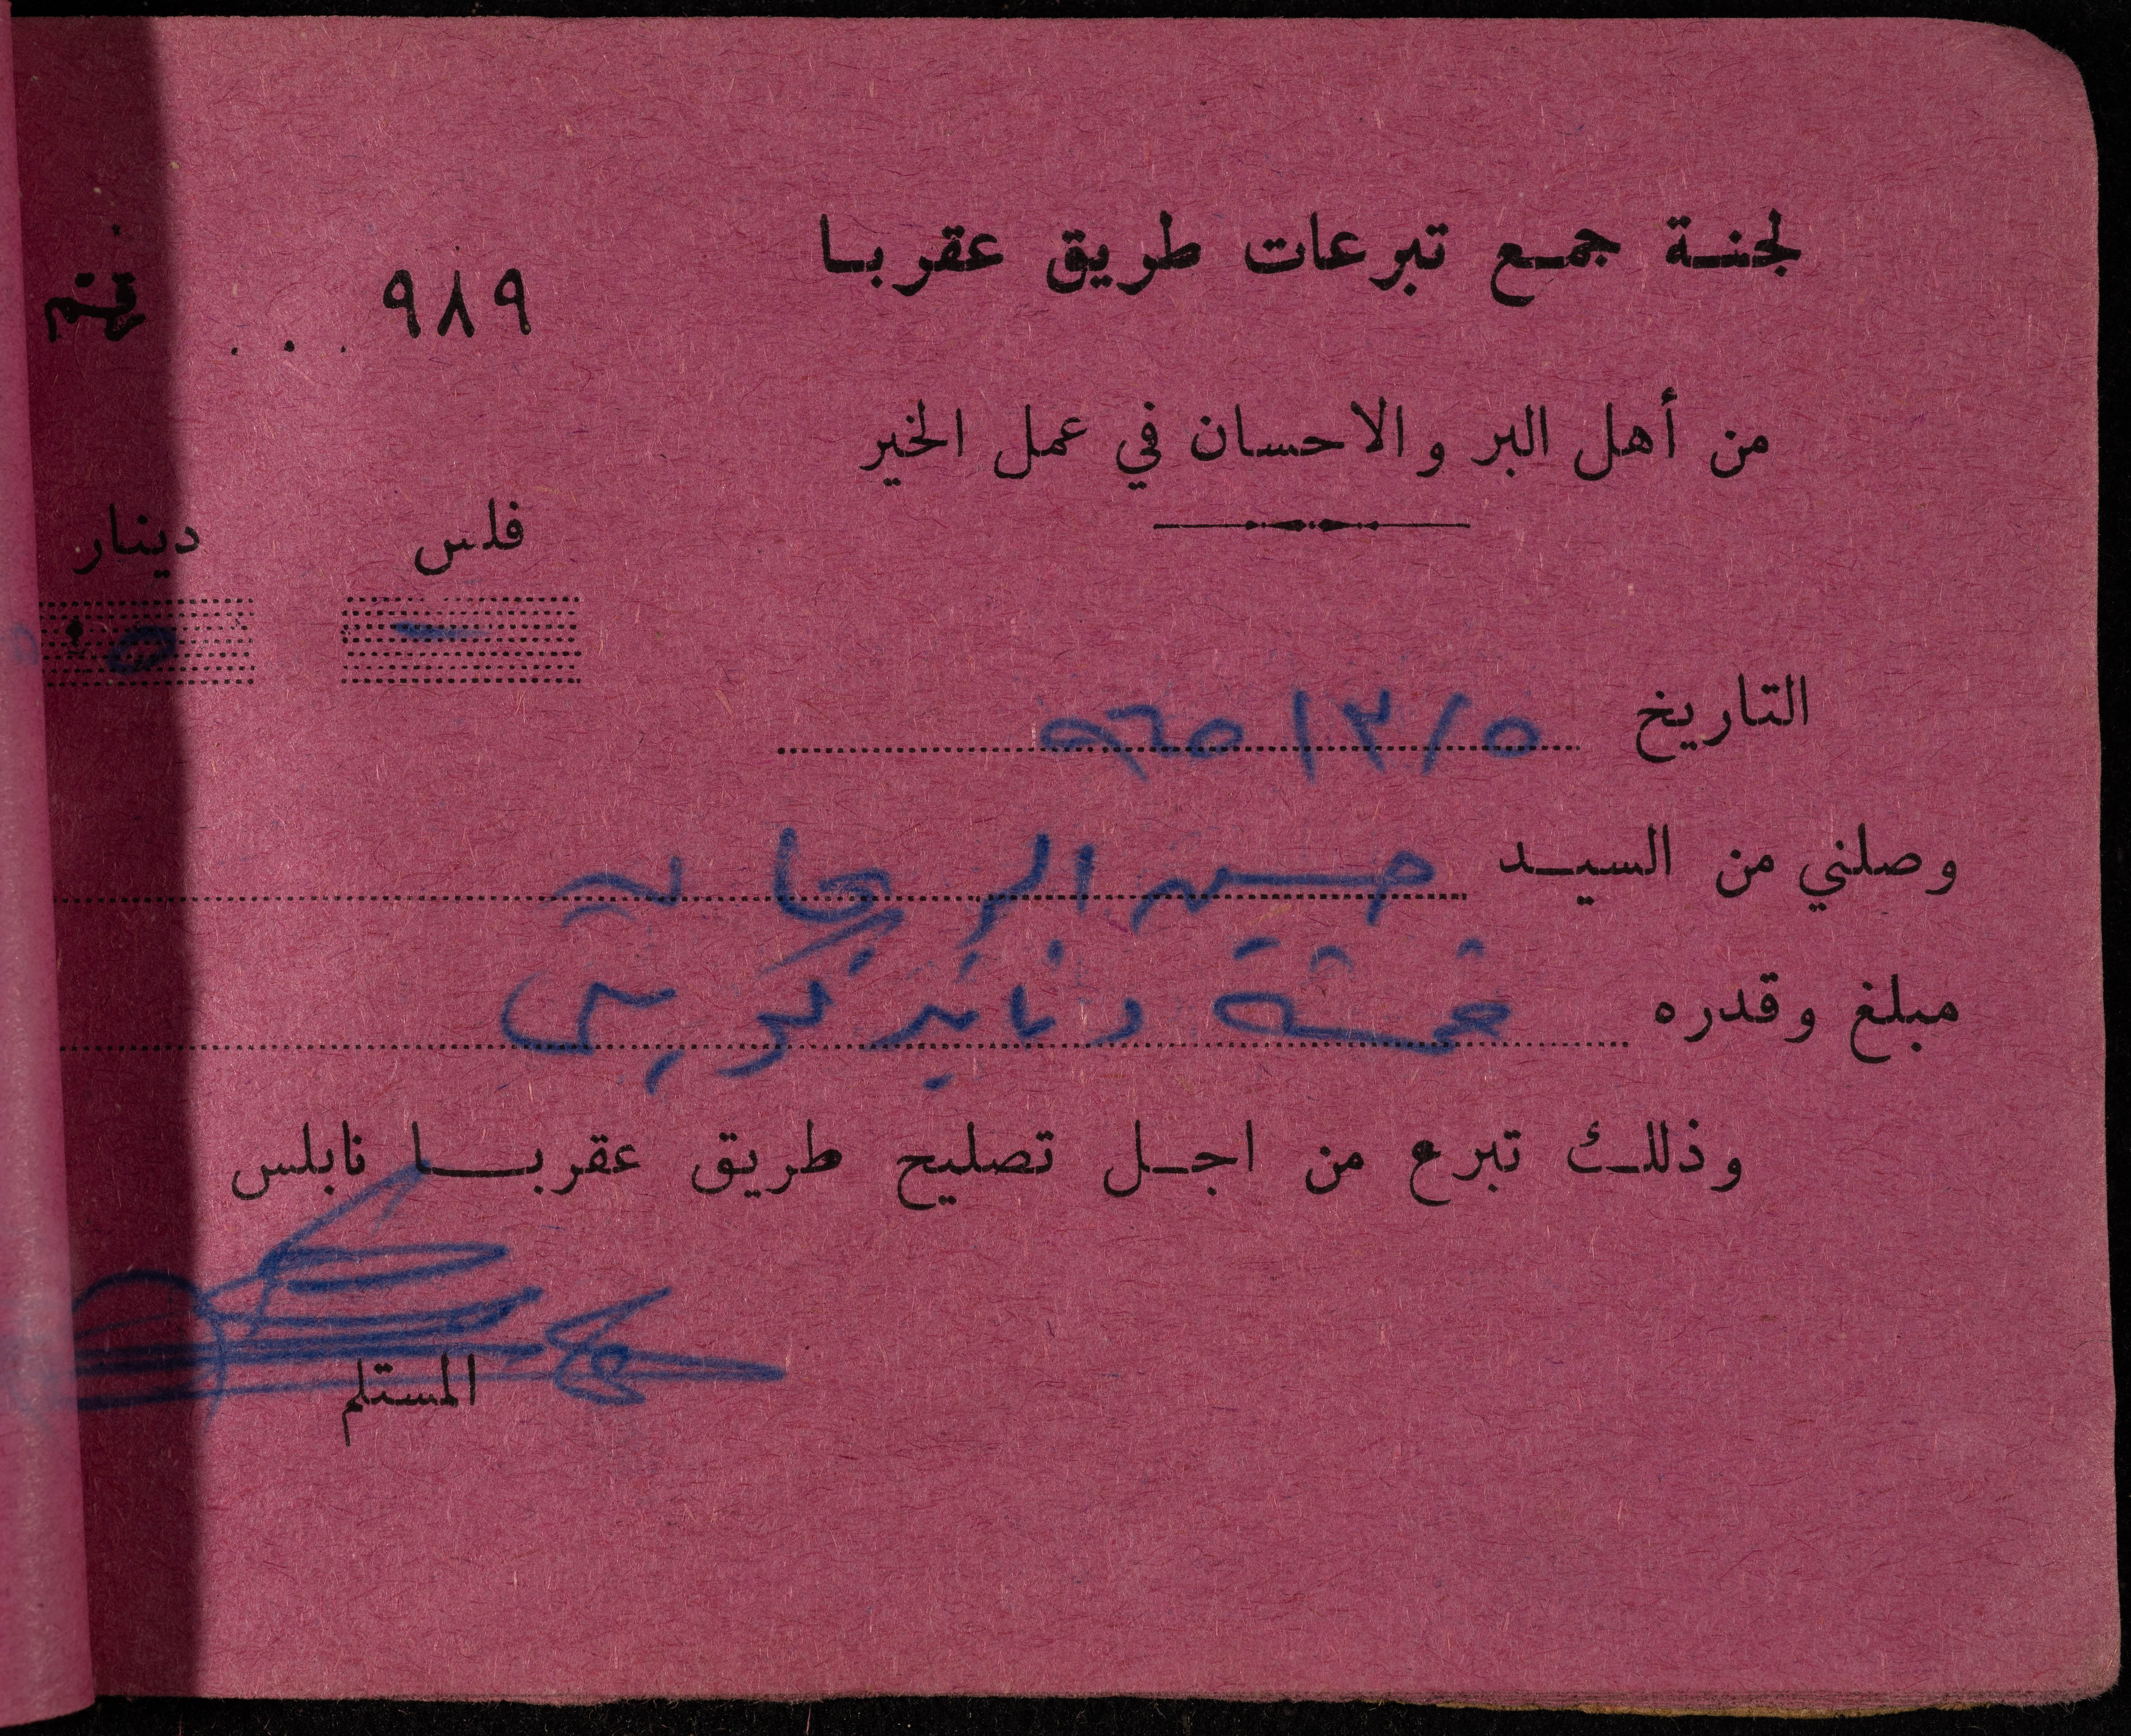 لجنة جمع تبرعات طريق عقربا
٩٨٩
من أهل البر والاحسان في عمل الخير
فلس دينار
— ٥
التاريخ ٥/٣/٩٦٥
وصلني من السيد حسن
مبلغ وقدره خمسة دنانير
وذلك تبرع من اجل تصليح طريق عقربا نابلس
المستلم